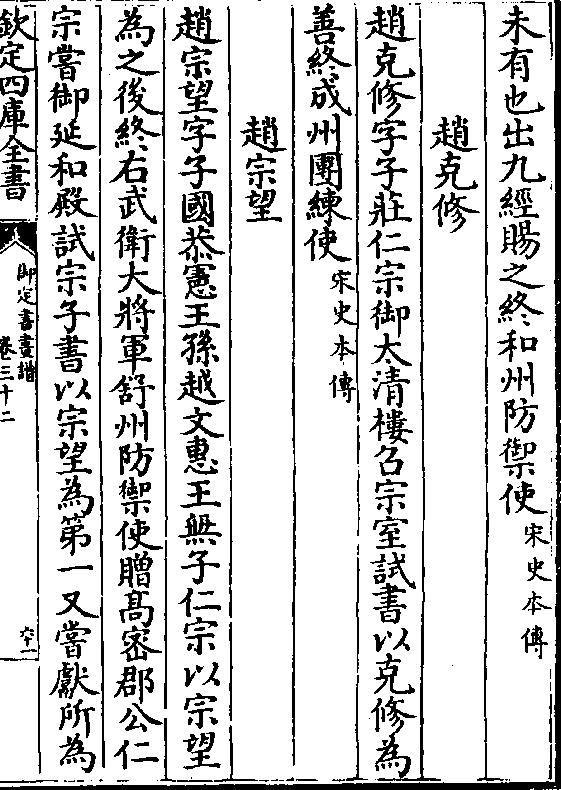 未有也出九經賜之終和州防禦使宋史本傳
趙克修
趙克修字子莊仁宗御太清樓召宗室試書以克修為
善終成州團練使宋史本傳
趙宗望
趙宗望字子國恭憲王孫越文惠王無子仁宗以宗望
為之後終右武衛大將軍舒州防禦使贈髙密郡公仁
宗嘗御延和殿試宗子書以宗望為第一又嘗獻所為
欽定四庫全書
御定書畫譜
卷三十二
六十一